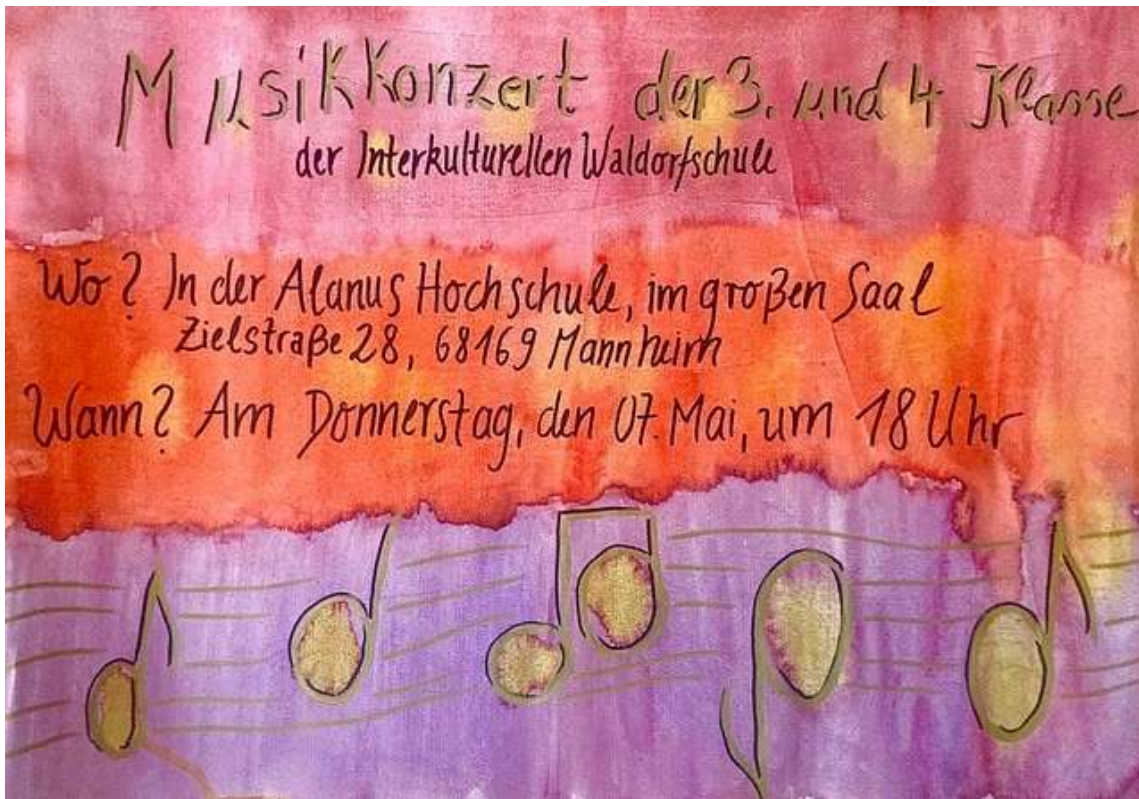 Musikkonzert der 3. und 4 Klasse
der Interkulturellen Waldorfschule
Wo? In der Alanus Hochschule, im großen Saal
Zielstraße 28, 68169 Mannheim
Wann? Am Donnerstag, den 07. Mai, um 18 Uhr